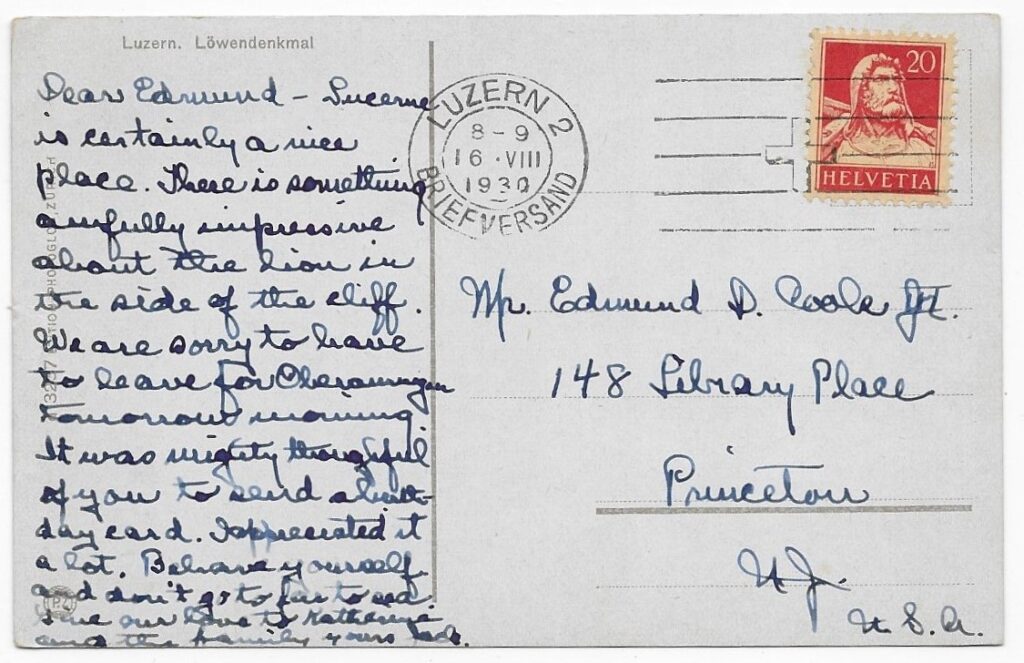 Luzern. Löwendenkmal
Dear Edmund – Lucerne
is certainly a nice
place. There is something
awfully impressive
about the lion in
the side of the cliff.
We are sorry to have
to leave for Oberamergau
tomorrow morning.
It was mighty thoughtful
of you to send a birth-
day card. I appreciated it
a lot. Behave yourself
and don't go to far to sea.
Give our love to Katherine
and the family yours Jack.
LUZERN 2
8–9
16·VIII
1930
BRIEFVERSAND
20
HELVETIA
Mr. Edmund D. Cook Jr.
148 Library Place
Princeton
N.J.
U.S.A.